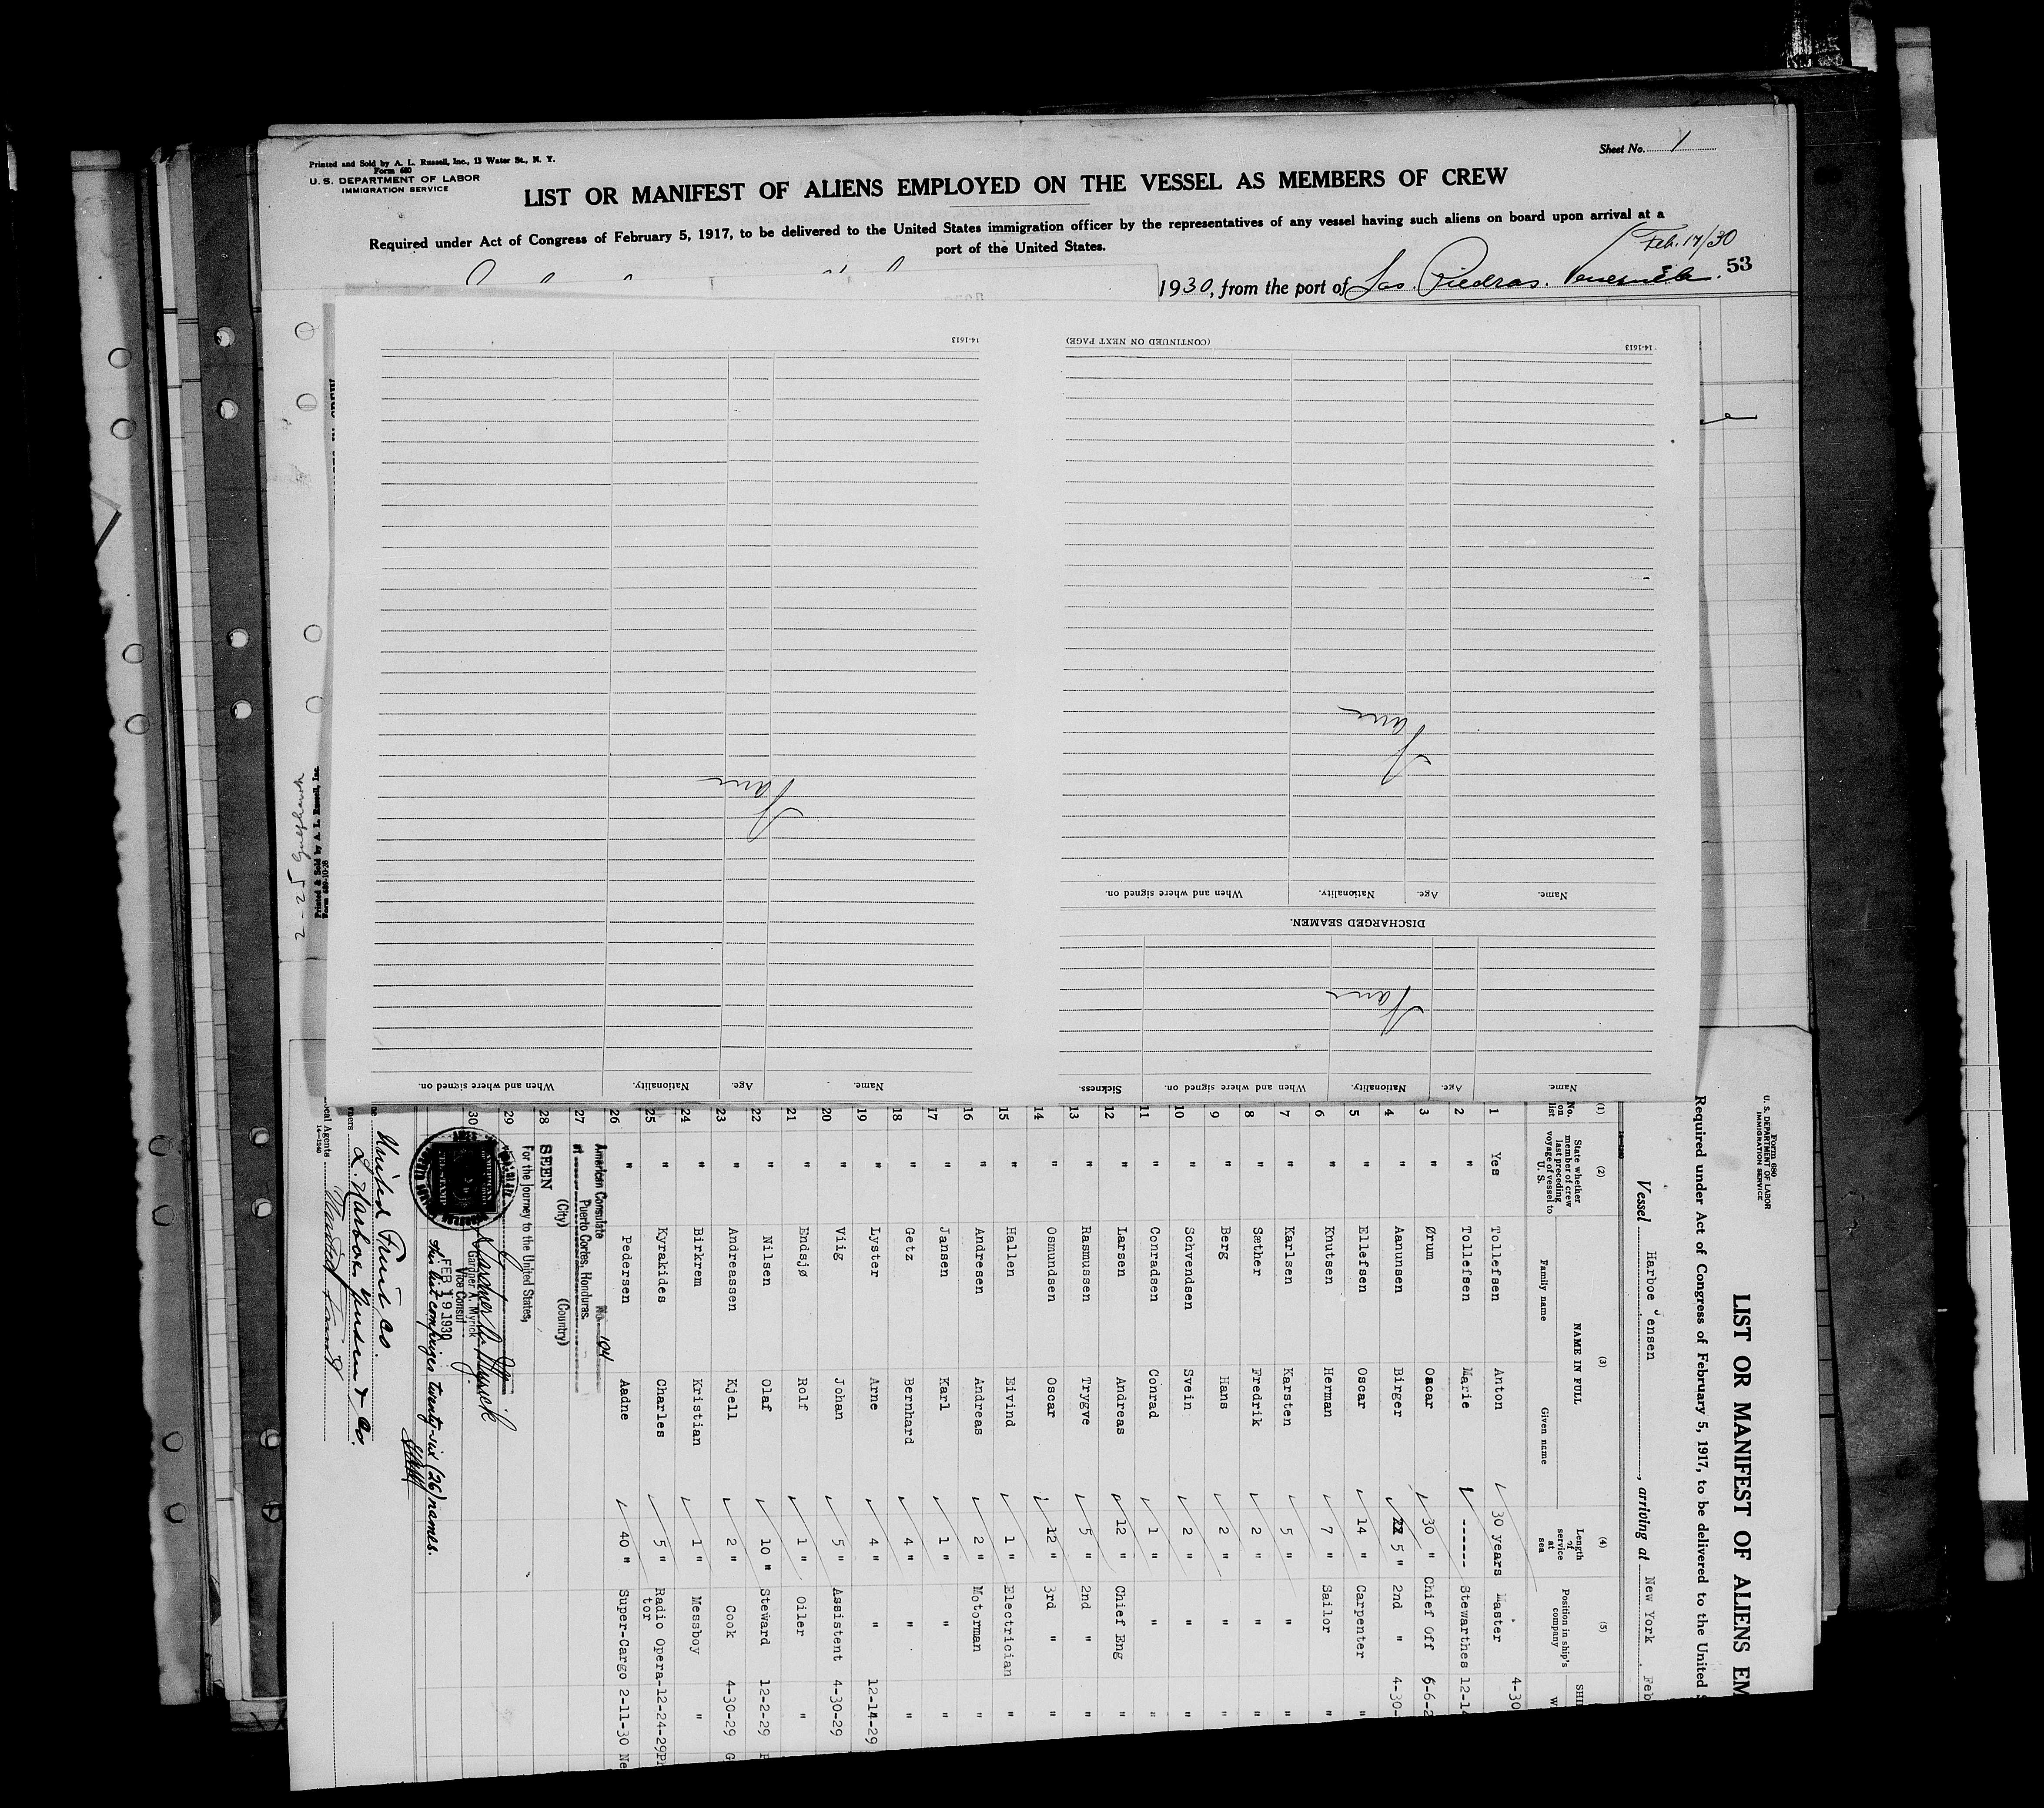 Sheet No. 1
Printed and Sold by A. L. Russell, Inc., 13 Water St., N. Y.
Form 680
U. S. DEPARTMENT OF LABOR
IMMIGRATION SERVICE
LIST OR MANIFEST OF ALIENS EMPLOYED ON THE VESSEL AS MEMBERS OF CREW
Required under Act of Congress of February 5, 1917, to be delivered to the United States immigration officer by the representatives of any vessel having such aliens on board upon arrival at a
port of the United States.
Feb. 17/30
1930, from the port of Las Piedras. Venezuela. 53
14-1613
(CONTINUED ON NEXT PAGE)
14-1613
When and where signed on. Nationality. Age. Name.
DISCHARGED SEAMEN.
Sickness. When and where signed on. Nationality. Age. Name.
When and where signed on. Nationality. Age. Name.
2-25
Printed & Sold by A. L. Russell, Inc.
Form 680-10-28
Form 680
U. S. DEPARTMENT OF LABOR
IMMIGRATION SERVICE
LIST OR MANIFEST OF ALIENS EM
Required under Act of Congress of February 5, 1917, to be delivered to the United S
Vessel Harboe Jensen, arriving at New York, Feb
(1) (2) (3) (4) (5)
No. on list
State whether member of crew last preceding voyage of vessel to U. S.
NAME IN FULL
Family name Given name
Length of service at sea
Position in ship's company
1 Yes Tollefsen Anton 30 years Master 4-30
2 " Tollefsen Marie ------ Stewarthes 12-14
3 " Ørum Oscar 30 " Chief Off 6-6-2
4 " Aanunsen Birger 5 " 2nd " 4-30-
5 " Ellefsen Oscar 14 " Carpenter "
6 " Knutsen Herman 7 " Sailor "
7 " Karlsen Karsten 5 " " "
8 " Sæther Fredrik 2 " " "
9 " Berg Hans 2 " " "
10 " Schvendsen Svein 2 " " "
11 " Conradsen Conrad 1 " " "
12 " Larsen Andreas 12 " Chief Eng "
13 " Rasmussen Trygve 5 " 2nd " "
14 " Osmundsen Oscar 12 " 3rd " "
15 " Hallen Eivind 1 " Electrician "
16 " Andresen Andreas 2 " Motorman "
17 " Jansen Karl 1 " " "
18 " Getz Bernhard 4 " " "
19 " Lyster Arne 4 " " 12-14-29
20 " Viig Johan 5 " Assistent 4-30-29
21 " Endsjø Rolf 1 " Oiler "
22 " Nilsen Olaf 10 " Steward 12-2-29
23 " Andreassen Kjell 2 " Cook 4-30-29 G
24 " Birkrem Kristian 1 " Messboy "
25 " Kyrakides Charles 5 " Radio Opera-tor 12-24-29 Ph
26 " Pedersen Aadne 40 " Super-Cargo 2-11-30 Ne
27
28
29
30
American Consulate No. 104
at Puerto Cortes, Honduras
(City) (Country)
SEEN
For the journey to the United States,
Gardner A. Myrick
Gardner A. Myrick
Vice Consul
FEB 19 1930
This list comprises twenty-six (26) names.
United Fruit Co.
L. Harboe Jensen & Co.
Local Agents
14-1240